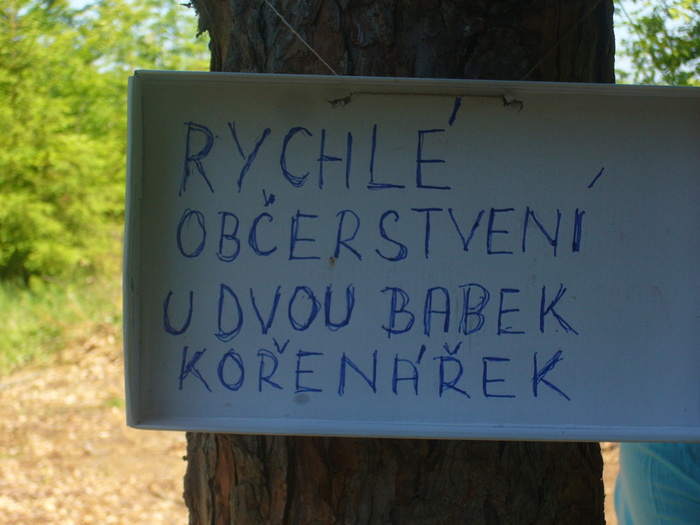 RYCHLÉ
OBČERSTVENÍ
U DVOU BABEK
KOŘENÁŘEK